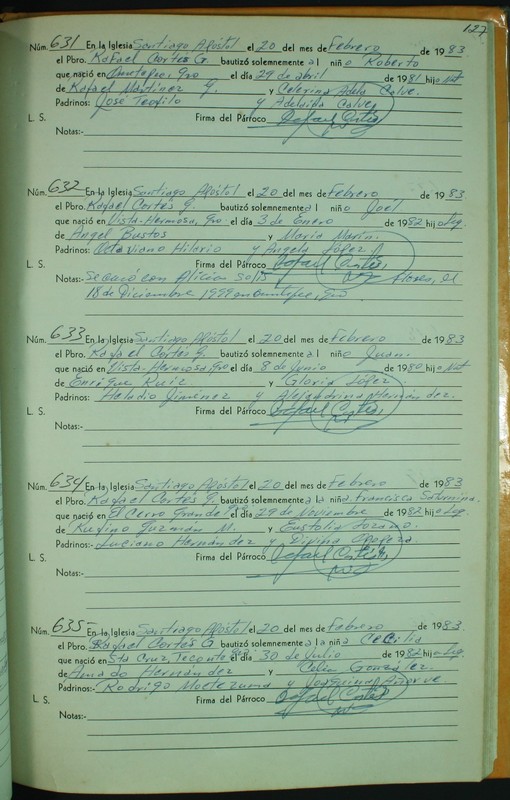 127
Núm. 631 En la Iglesia Santiago Apóstol el 20 del mes de Febrero de 1983
el Pbro. Rafael Cortés G. bautizó solemnemente al niño Roberto
que nació en Gro el día 29 de abril de 1981 hijo Nat
de Rafael Martínez G. y Celerina Adela Calve.
Padrinos: José Teofilo y Adelaida Calvo
L. S. Firma del Párroco Rafael Cortés
Notas:
Núm. 632 En la Iglesia Santiago Apóstol el 20 del mes de Febrero de 1983
el Pbro. Rafael Cortés G. bautizó solemnemente al niño Joel
que nació en Vista-Hermosa, Gro el día 3 de Enero de 1982 hijo Leg.
de Angel Bustos y María Marín.
Padrinos: Octaviano Hilario y Angela López
L. S. Firma del Párroco Rafael Cortés
Notas:- Se casó con Alicia Solís Flores, el
18 de Diciembre 1999 en Gro
Núm. 633 En la Iglesia Santiago Apóstol el 20 del mes de Febrero de 1983
el Pbro. Rafael Cortés G. bautizó solemnemente al niño Juan.
que nació en Vista-Hermosa, Gro el día 8 de Junio de 1980 hijo Nat
de Enrique Ruiz y Gloria López
Padrinos: Heladio Jiménez y Alejandrina Hernández.
L. S. Firma del Párroco Rafael Cortés
Notas:-
Núm. 634 En la Iglesia Santiago Apóstol el 20 del mes de Febrero de 1983
el Pbro. Rafael Cortés G. bautizó solemnemente a la niña Francisca Saturnina.
que nació en El Cerro Grande el día 29 de Noviembre de 1982 hija Leg.
de Rufino Guzmán M. y Eustolia Lozano.
Padrinos:- Luciano Hernández y Divina
L. S. Firma del Párroco Rafael Cortés
Notas:
Núm. 635 En la Iglesia Santiago Apóstol el 20 del mes de Febrero de 1983
el Pbro. Rafael Cortés G. bautizó solemnemente a la niña Cecilia
que nació en Sta Cruz el día 30 de Julio de 1982 hija Leg.
de Amado Hernández y Celia González.
Padrinos:- Rodrigo Moctezuma y Joaquina Añorve
L. S. Firma del Párroco Rafael Cortés
Notas:-